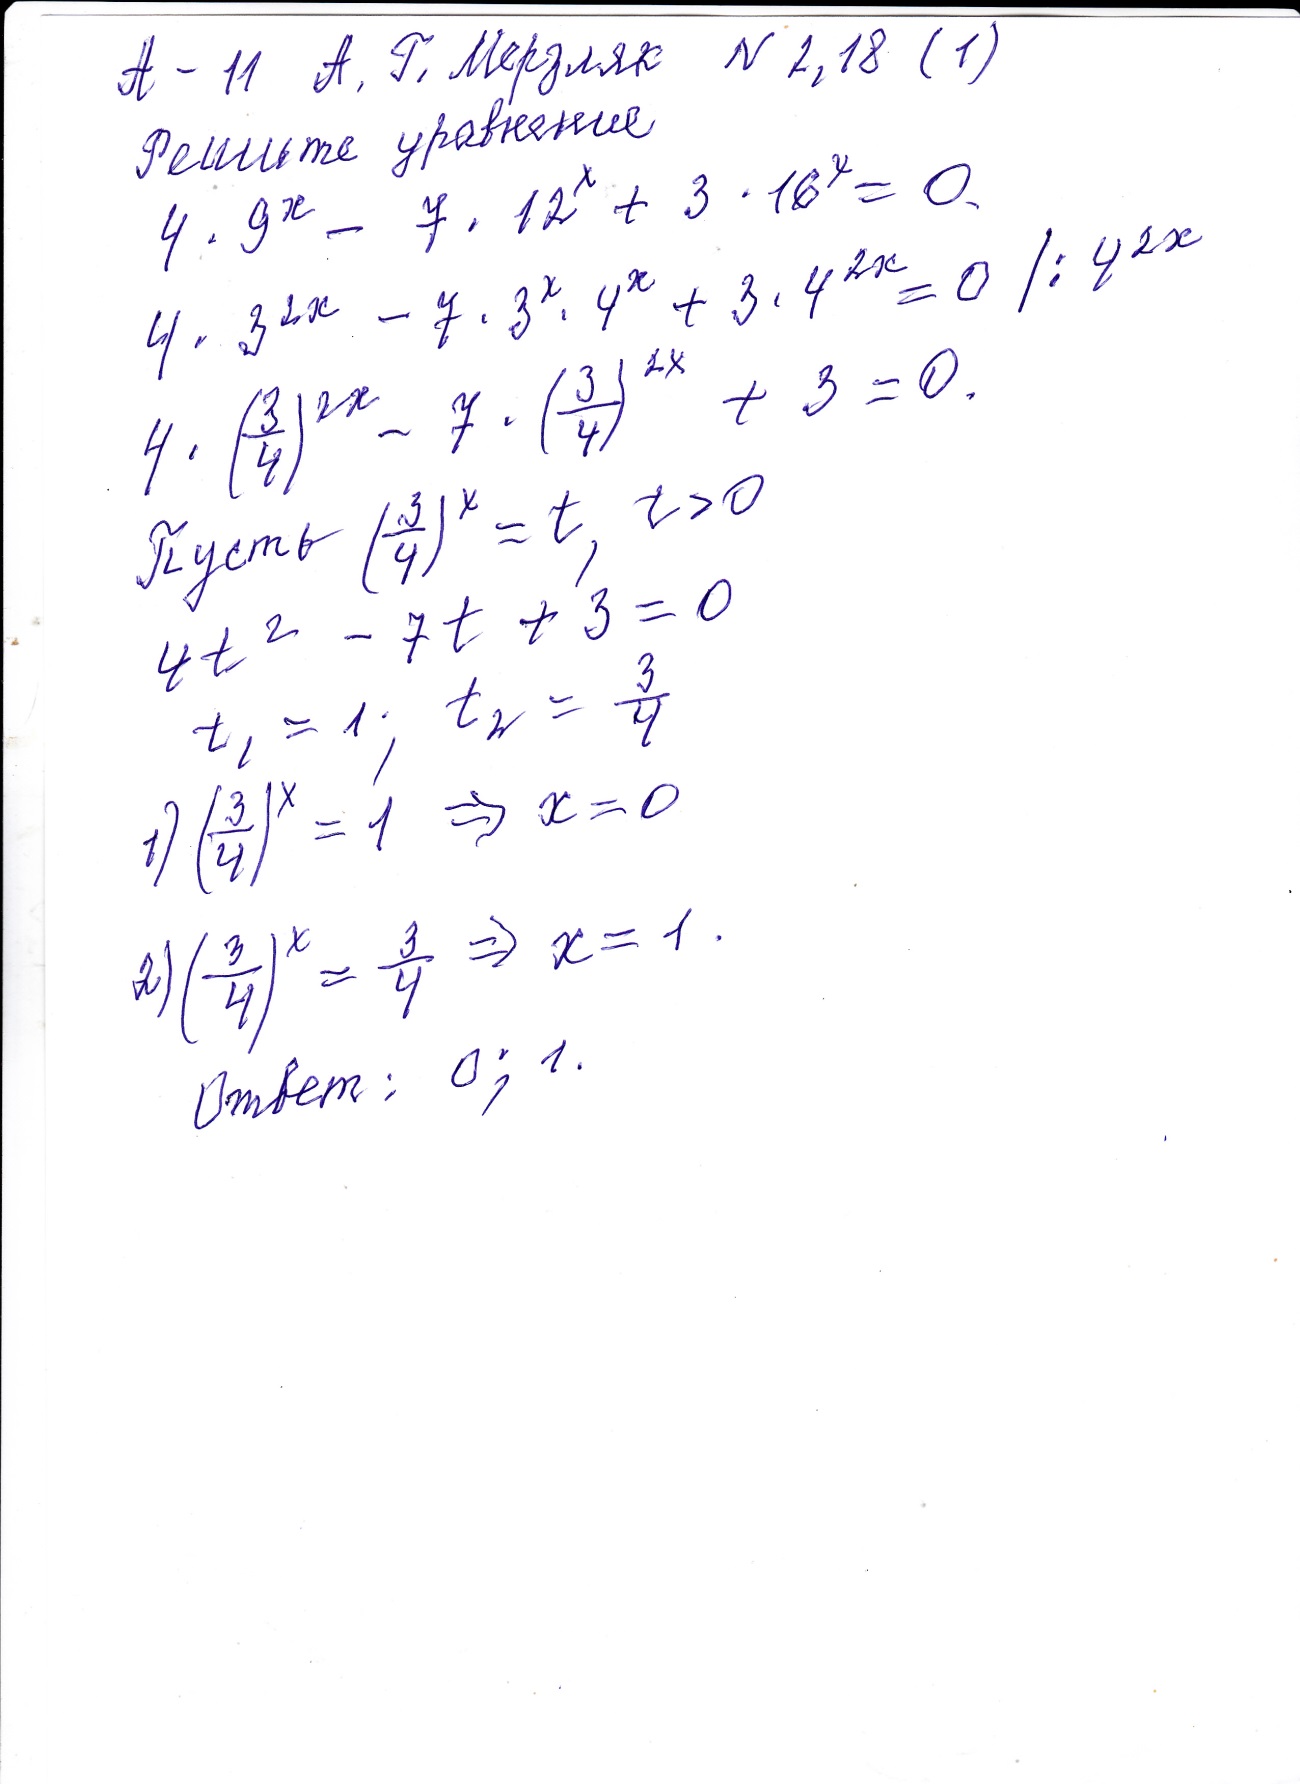 А - 11 А. Г. Мерзляк N 2,18 (1)
Решите уравнение
4 · 9^x - 7 · 12^x + 3 · 16^x = 0.
4 · 3^{2x} - 7 · 3^x · 4^x + 3 · 4^{2x} = 0 /: 4^{2x}
4 · (3/4)^{2x} - 7 · (3/4)^{2x} + 3 = 0.
Пусть (3/4)^x = t, t > 0
4t^2 - 7t + 3 = 0
t_1 = 1; t_2 = 3/4
1) (3/4)^x = 1 ⇒ x = 0
2) (3/4)^x = 3/4 ⇒ x = 1.
Ответ: 0; 1.